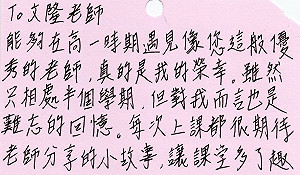 To文隆老師
能夠在高一時期遇見像您這般優
秀的老師，真的是我的榮幸。雖然
只相處半個學期，但對我而言也是
難忘的回憶。每次上課都很期待
老師分享的小故事，讓課堂多了趣